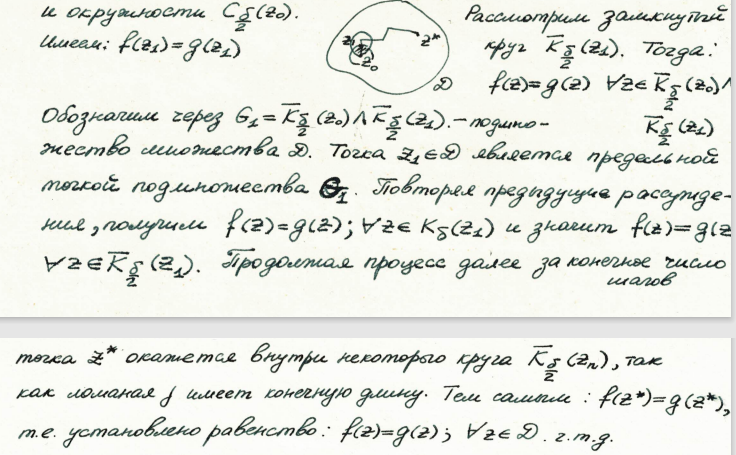 и окружности C_{δ/2}(z₀). Рассмотрим замкнутый
Имеем: f(z₁)=g(z₁) круг K̅_{δ/2}(z₁). Тогда:
z₁ z₀ z* D f(z)=g(z) ∀z∈K̅_{δ/2}(z₀)∧
Обозначим через G₁=K̅_{δ/2}(z₀)∧K̅_{δ/2}(z₁).-подмно- K̅_{δ/2}(z₁)
жество множества D. Точка z₁∈D является предельной
точкой подмножества G₁. Повторяя предыдущие рассужде-
ния, получим f(z)=g(z); ∀z∈K_δ(z₁) и значит f(z)=g(z
∀z∈K̅_{δ/2}(z₁). Продолжая процесс далее за конечное число
шагов
точка z* окажется внутри некоторого круга K̅_{δ/2}(zₙ), так
как ломаная γ имеет конечную длину. Тем самым: f(z*)=g(z*),
т.е. установлено равенство: f(z)=g(z); ∀z∈D. ч.т.д.